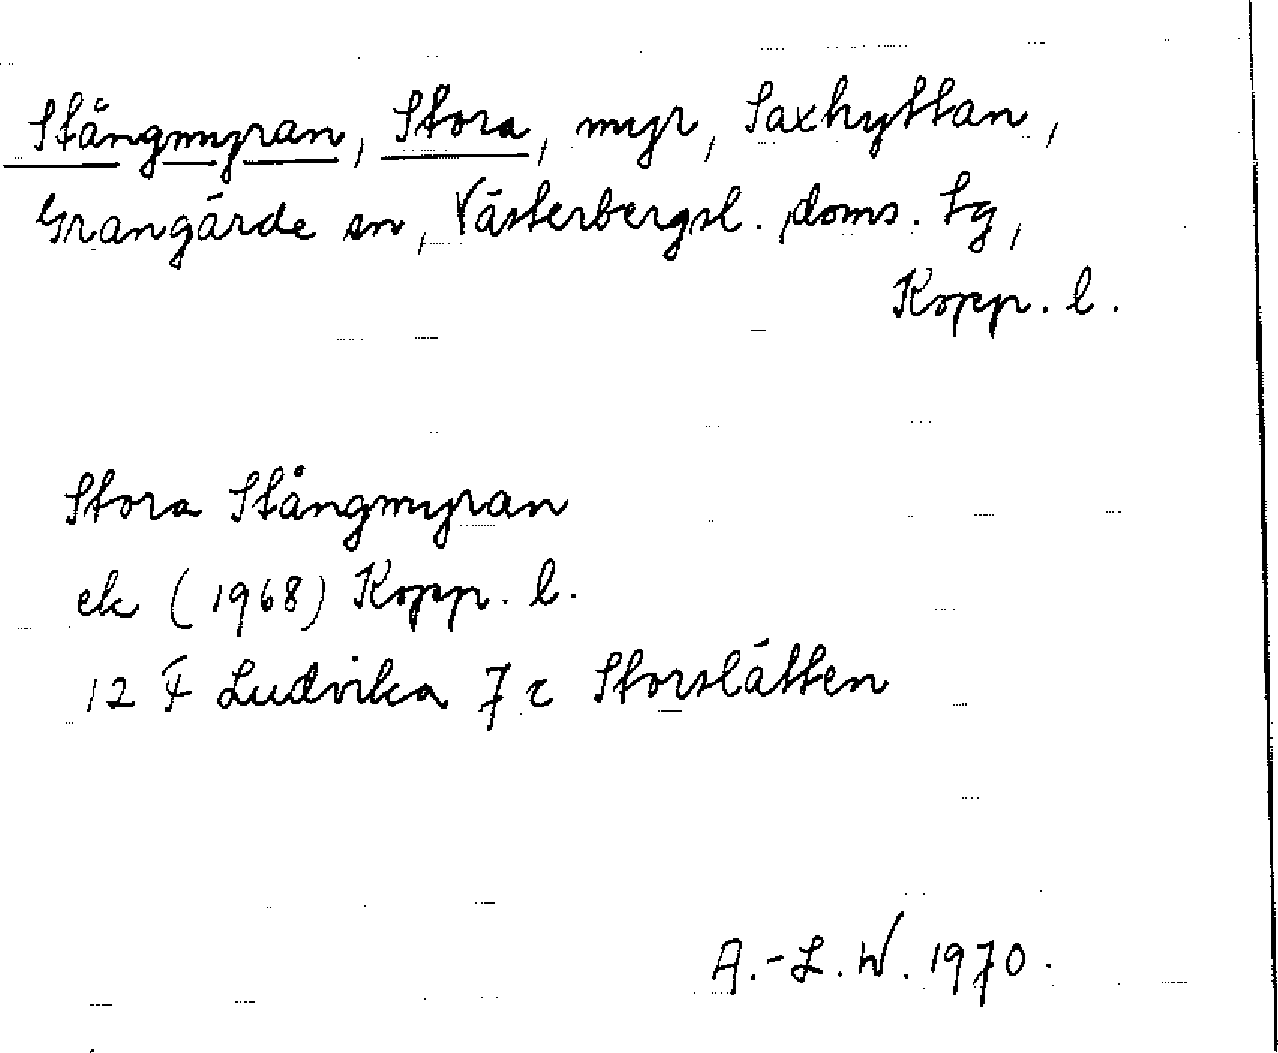 Stångmyran, Stora, myr, Saxhyttan,
Grangärde sn, Västerbergsl. doms. tg,
Kopp. l.
Stora Stångmyran
ek (1968) Kopp. l.
12 F Ludvika 7 c Storslätten
A.-L. W. 1970.